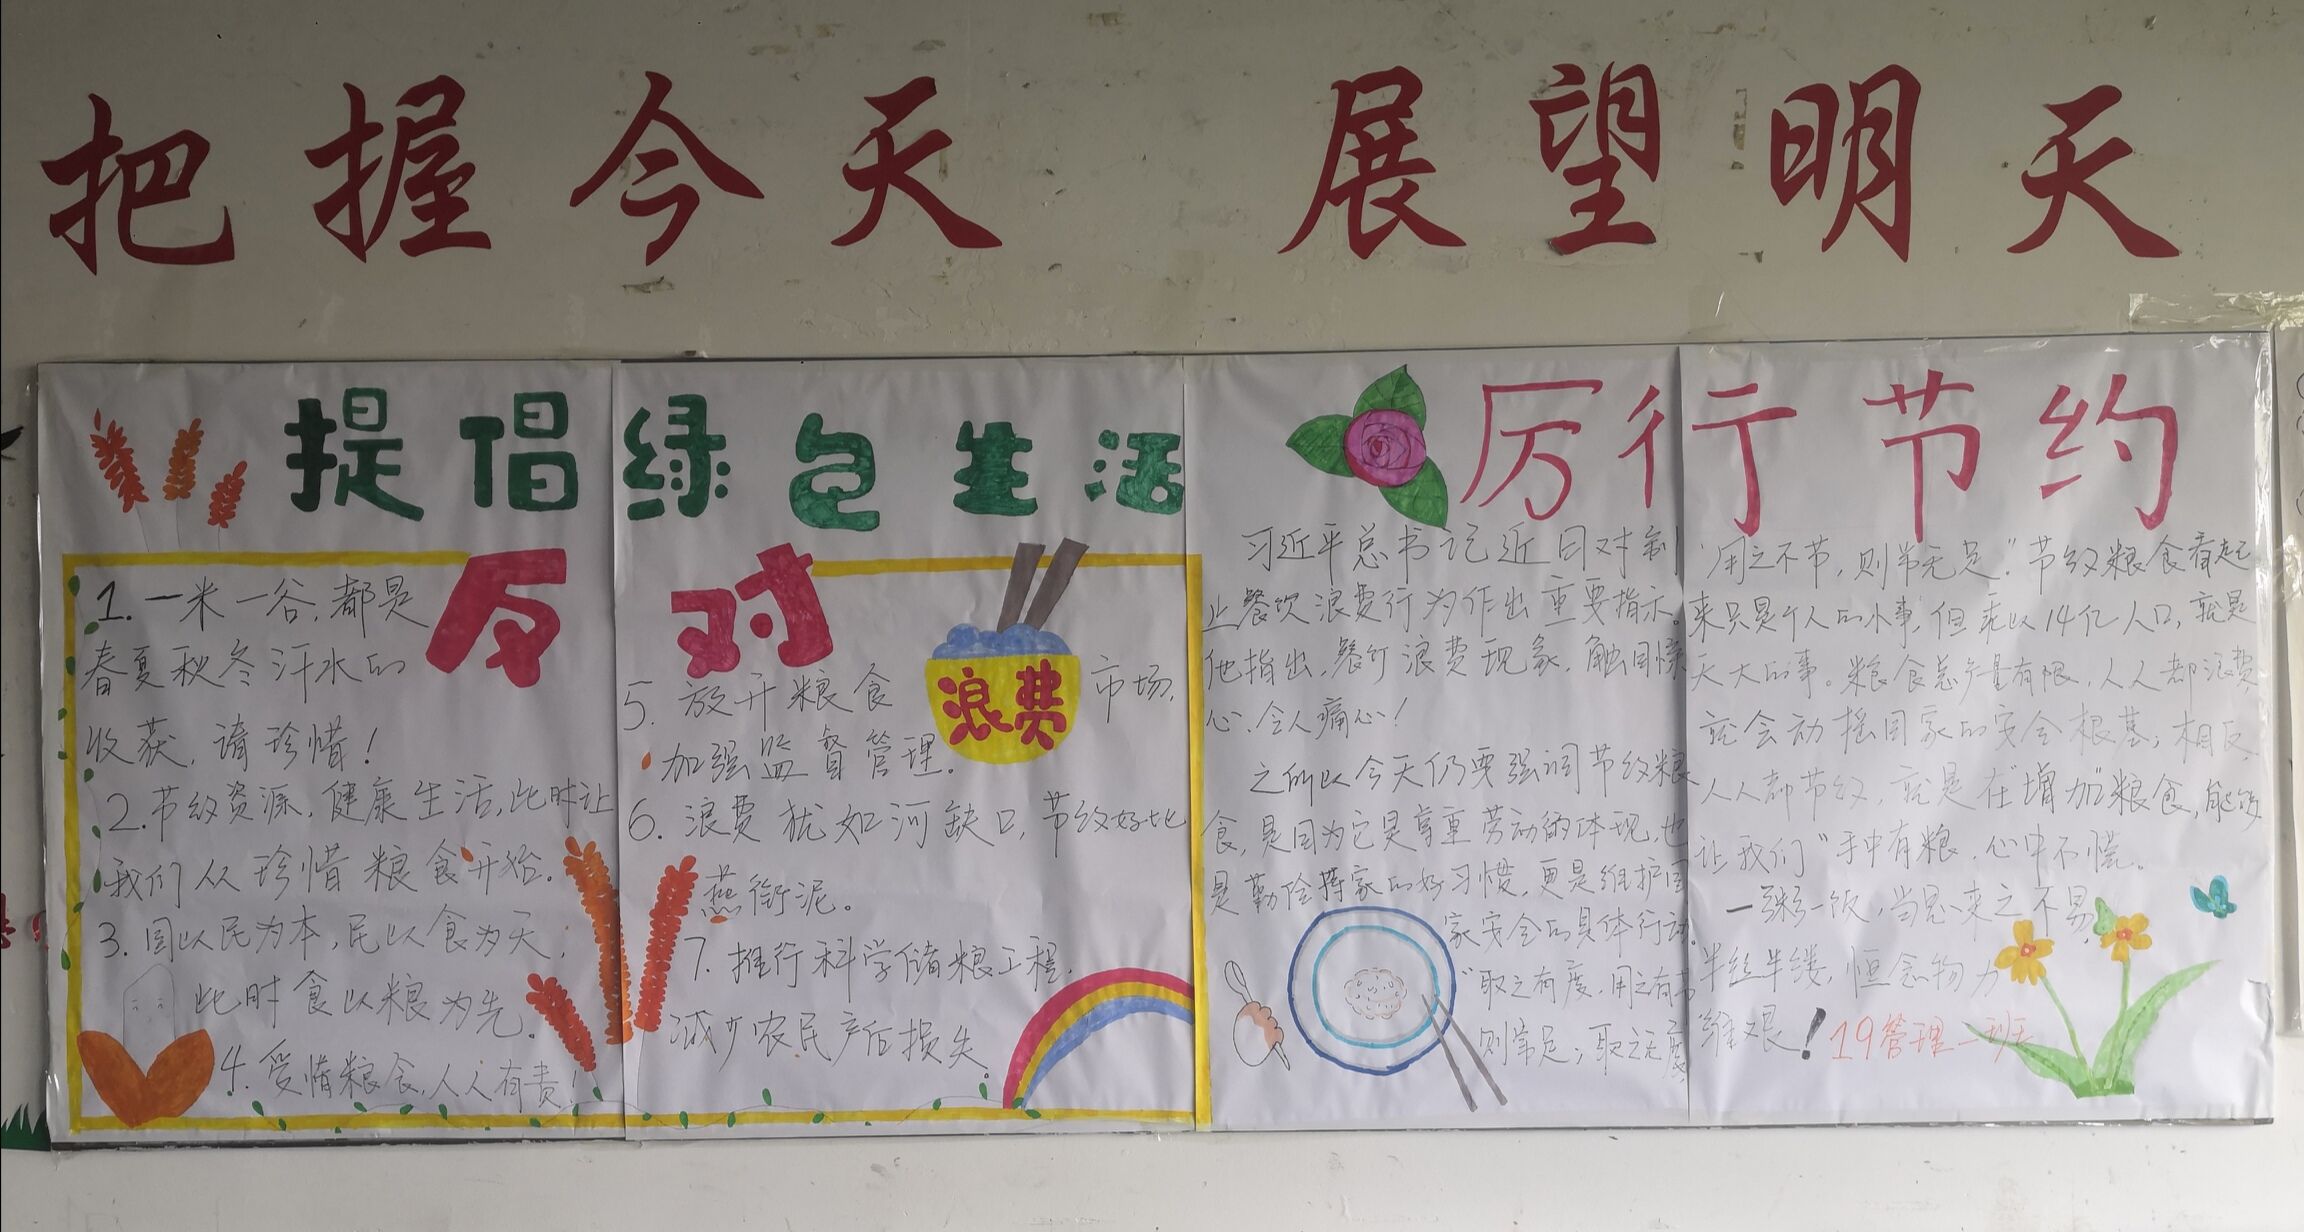 把握今天 展望明天
提倡绿色生活
反对
浪费
1.一米一谷,都是
春夏秋冬汗水的
收获,请珍惜!
2.节约资源,健康生活,此时让
我们从珍惜粮食开始.
3.国以民为本,民以食为天,
此时食以粮为先。
4.爱惜粮食,人人有责!
5.放开粮食市场,
加强监督管理.
6.浪费犹如河缺口,节约好比
燕衔泥。
7.推行科学储粮工程,
减少农民产后损失。
厉行节约
习近平总书记近日对制
止餐饮浪费行为作出重要指示。
他指出,餐饮浪费现象,触目惊
心、令人痛心!
之所以今天仍要强调节约粮
食,是因为它是尊重劳动的体现,也
是勤俭持家的好习惯,更是维护国
家安全的具体行动.
"取之有度,用之有节
则常足;取之无度
用之不节,则常无足."节约粮食看起
来只是个人的小事,但乘以14亿人口,就是
天大的事。粮食总产量有限,人人都浪费,
就会动摇国家的安全根基;相反,
人人都节约,就是在"增加"粮食,能够
让我们"手中有粮,心中不慌。
一粥一饭,当思来之不易,
半丝半缕,恒念物力
维艰!19管理一班